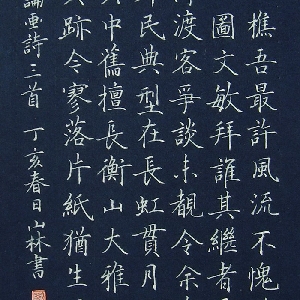 樵吾最許風流不愧
圖文敏拜誰其繼者
渡客爭談未令余
民典型在長虹貫月
中舊擅長衡山大雅
跡今寥落片紙猶生
論画詩三首 丁亥春日山林書